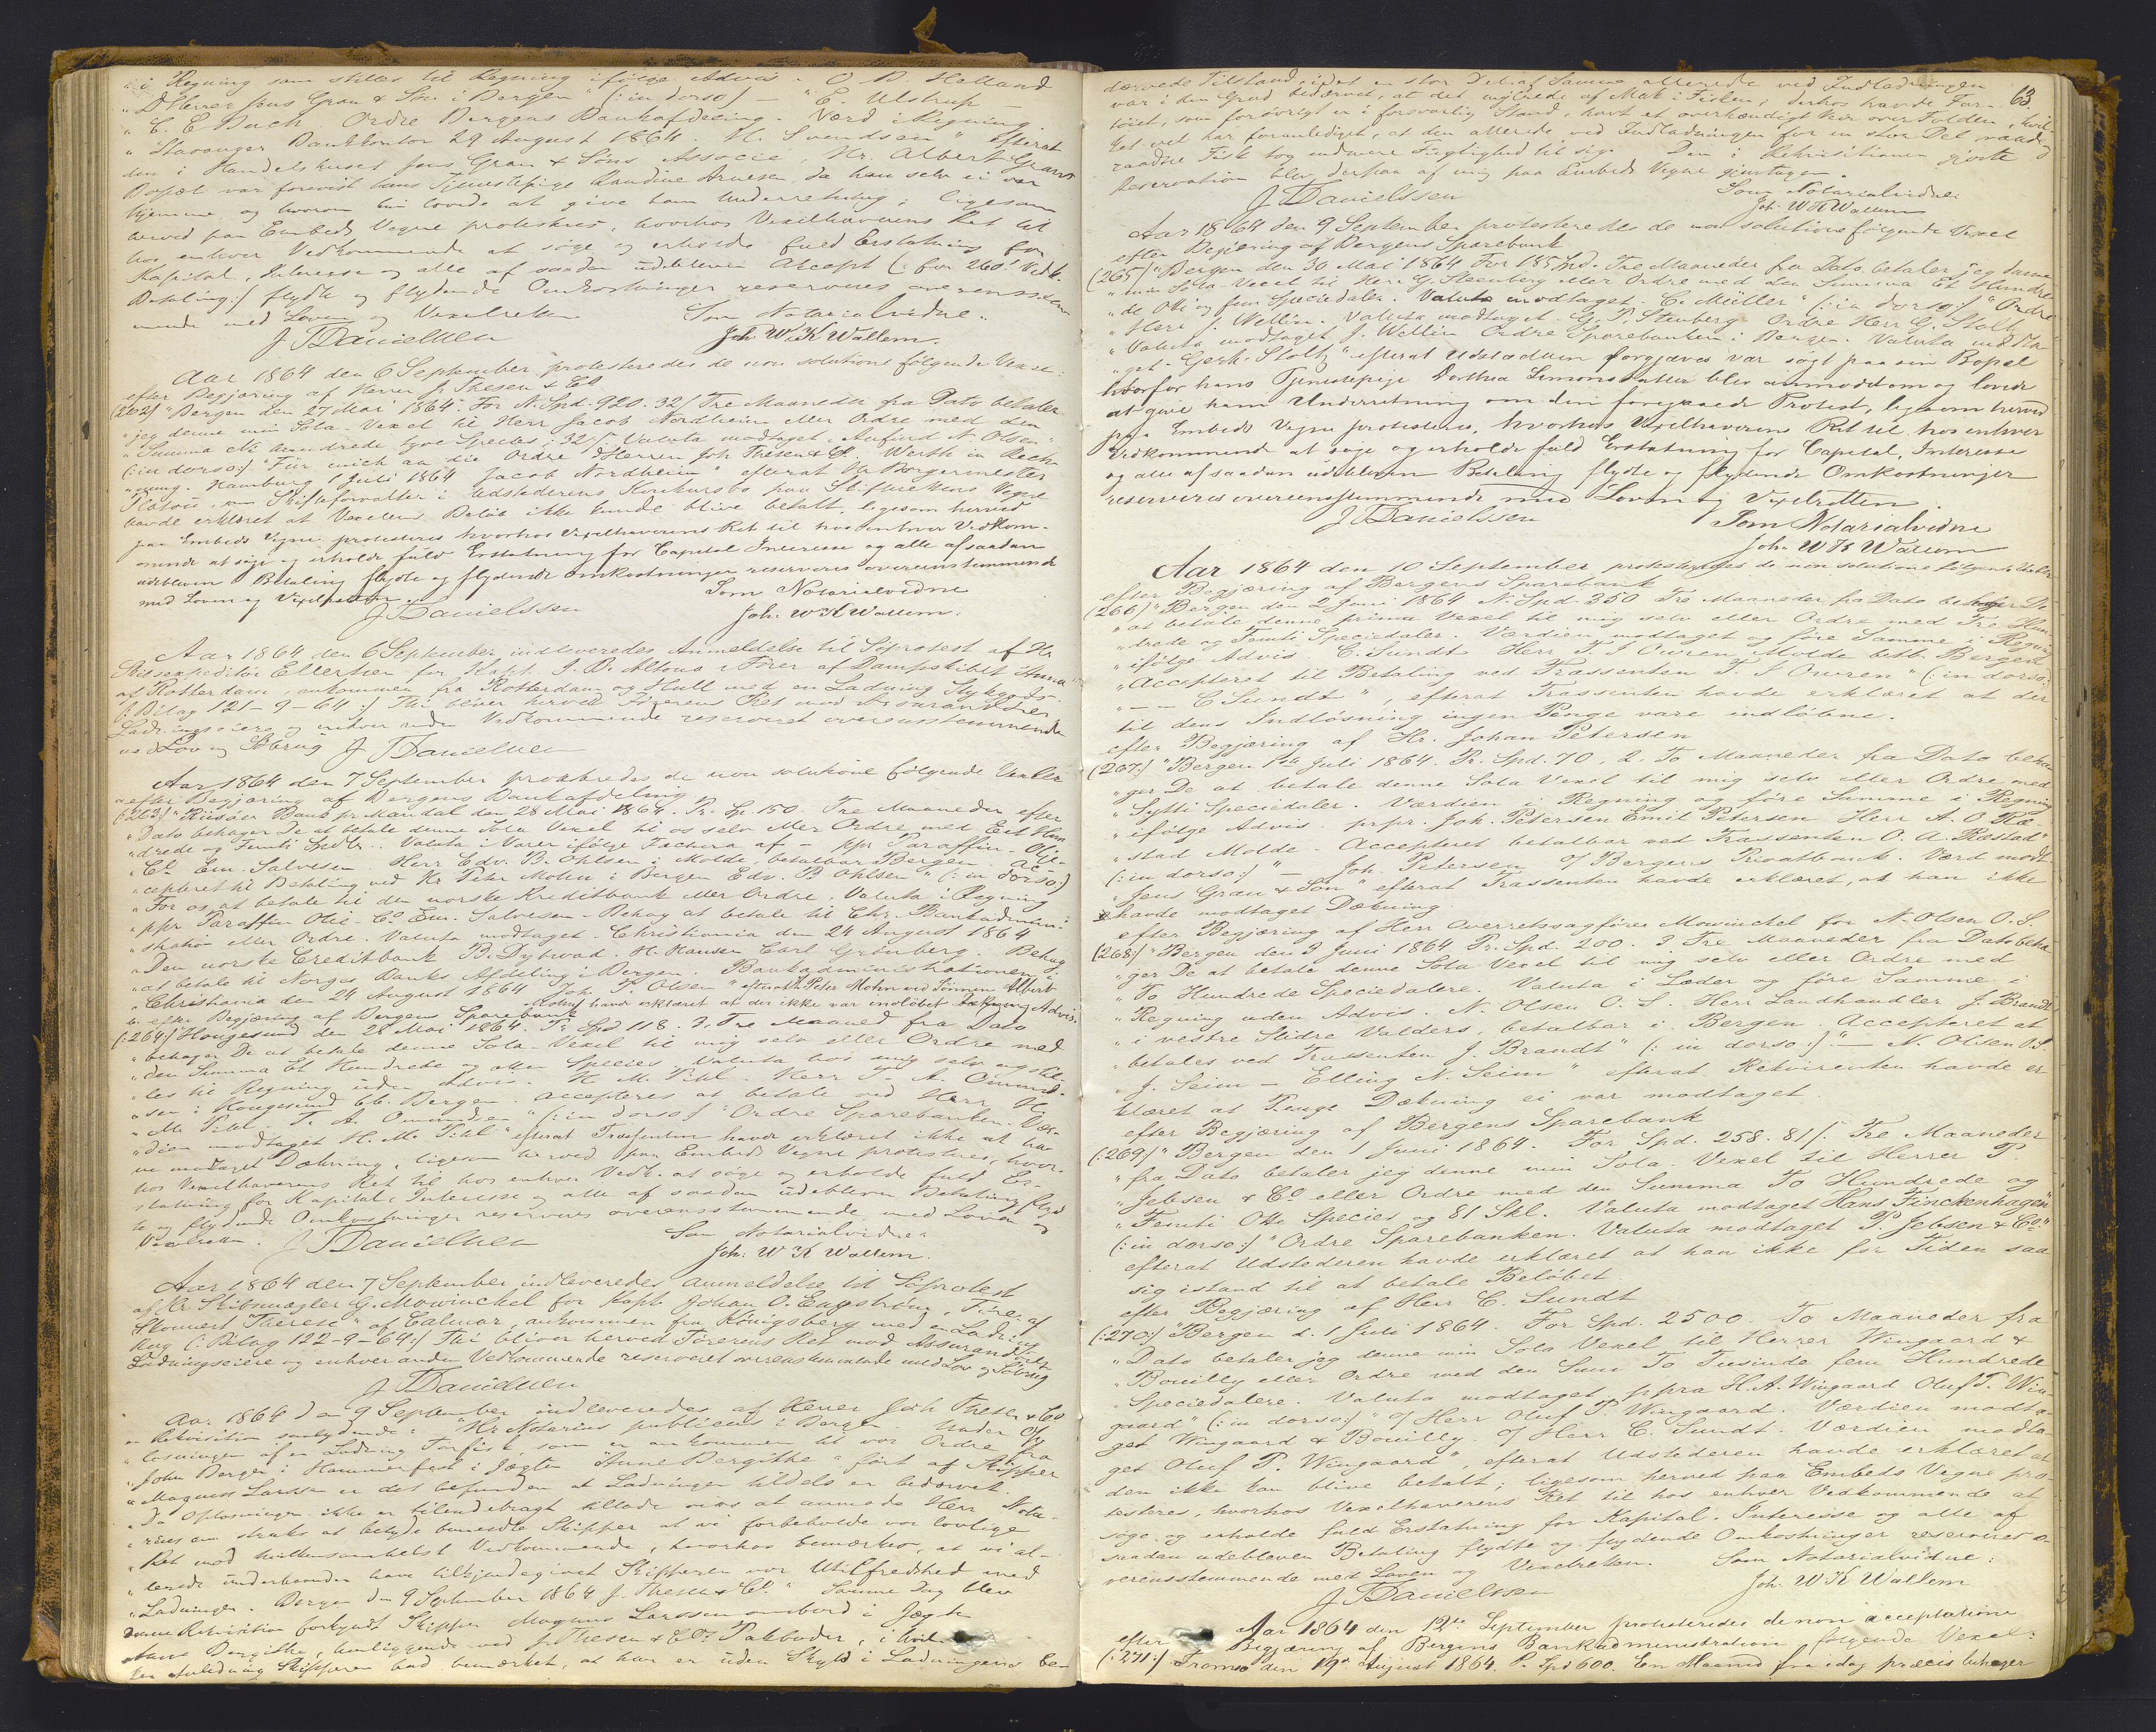 "i Regning som stilles til Regning ifölge Advis. O. D. Helland
"D'Herrer Jens Gran & Søn i Bergen" (: in dorso) — "E. Ulstrup —
"C. E. Bach. Ordre Bergens Bankafdeling. Værd i Regning.
"Stavanger Bankkontor 29 August 1864. N. Svendsen" efterat
den i Handelshuset Jens Gran & Söns Associe, Hr. Albert Grans
Bopæl var forevist hans Tjenestepige Randine Arnesen, da han selv ei var
hjemme og hvorom hun lovede at give ham Underretning; ligesom
herved paa Embeds Vegne protesteres, hvorhos Vexelhaverens Ret til
hos enhver Vedkommende at söge og erholde fuld Erstatning for
Kapital, Interesse og alle af saadan udebleven Accept (: for 260
Betaling :) flydte og flydende Omkostninger reserveres overensstem-
mende med Loven og Vexelretten Som Notarialvidne.
J Danielssen Joh. W K Wallem.
Aar 1864 den 6 September protesteredes de non solutione følgende Vexel:
efter Begjæring af Herrer J. Thesen & Co
(262) "Bergen den 27 Mai 1864. For N. Spd. 920. 32 ſ Tre Maaneder fra Dato betaler
"jeg denne min Sola-Vexel til Herr Jacob Nordheim eller Ordre med den
"Summa Ni hundrede tyve Species, 32 ſ. Valuta modtaget. Anfind N. Olsen"
(: in dorso :) "Für mich an die Ordre d'Herren Joh Thesen & Co. Werth in Rech-
"nung. Hamburg 1 Juli 1864 Jacob Nordheim" efterat Hr Borgermester
Platou, som Skifteforvalter i Udstederens Konkursbo paa Skifterettens Vegne
havde erklæret at Vexelens Beløb ikke kunde blive betalt, ligesom herved
paa Embeds Vegne protesteres hvorhos Vexelhaverens Ret til hos enhver Vedkom-
mende at söge og erholde fuld Erstatning for Capital Interesse og alle af saadan
udebleven Betaling flydte og flydende Omkostninger reserveres overeenstemmende
med Loven og Vexelretten. Som Notarialvidne
J Danielssen Joh. W K Wallem.
Aar 1864 den 6 September indleveredes Anmeldelse til Söprotest af Hr
Skibsexpeditör Ellertsen for Kapt. J. D. Altona Förer af Dampskibet "Anna"
af Rotterdam, ankommen fra Rotterdam og Hull med en Ladning Stykgods
(: Bilag 121-9-64 :) Thi bliver herved Förerens Ret mod Assurandörer
Ladningseiere og enhver anden Vedkommende reserveret overensstemmende
med Lov og Söbrug J Danielssen
Aar 1864 den 7 September protesteredes de non solutione følgende Vexler
efter Begjæring af Bergens Bankafdeling
(: 263) "Risöer Bank pr Mandal den 28 Mai 1864. Pr. Sp. 150. Tre Maaneder efter
"Dato behager De at betale denne Sola Vexel til os selv eller Ordre med Eet Hun
"drede og Femti Spdlr. Valuta i Varer ifölge Factura af — ppr Paraffin-Olje-
"Co Em. Salvesen Herr Edv. B. Ohlsen i Molde, betalbar Bergen. Ac-
"cepteret til Betaling ved Hr Peter Mohn i Bergen Edv. B Ohlsen" (: in dorso :)
"For os at betale til den norske Kreditbank eller Ordre. Valuta i Regning
"ppr Paraffin Olie Co Em. Salvesen - Behag at betale til Chr. Bankadmini-
"stration eller Ordre. Valuta modtaget. Christiania den 24 August 1864
"Den norske Creditbank B. Dybwad. H. Hansen Carl Grönberg. Behag
"at betale til Norges Banks Afdeling i Bergen. Bankadministrationen i
"Christiania den 24 August 1864 Joh. P. Olsen" efterat Hr Peter Mohn ved Sönnen Albert
Mohn havde erklæret at der ikke var indløbet Advis.
efter Begjæring af Bergens Sparebank
(: 264) "Hougesund den 28 Mai 1864. Pr Spd 118. 3, Tre Maaned fra Dato
"behager De at betale denne Sola-Vexel til mig selv eller Ordre med
"den Summa Et Hundrede og atten Species, Valuta hos mig selv og stil-
"les til Regning uden Advis. H. M. Pihl. Herr T. A. Ommund-
"sen i Hougesund bb. Bergen. Accepteres at betale ved Herr H
"M. Pihl. T. A. Ommundsen" (: in dorso) "Ordre Sparebanken. Vær-
"dien modtaget H. M. Pihl" efterat Trassenten havde erklæret ikke at ha-
ve modtaget Dækning, ligesom herved paa Embeds Vegne protesteres, hvor-
hos Vexelhaverens Ret til hos enhver Vedk. at söge og erholde fuld Er-
statning for Kapital, Interesse og alle af saadan udebleven Betaling flyd-
te og flydende Omkostninger reserveres overensstemmende med Loven og
Vexelretten. Som Notarialvidne
J Danielssen Joh. W K Wallem.
Aar 1864 den 7 September indleveredes Anmeldelse til Söprotest
af Hr. Skibsmægler G. Mowinckel for Kapt. Johan O. Engström, Förer af
Skonnert "Therese" af Calmar, ankommen fra Königsberg med en Ladn:
Rug (: Bilag 122-9-64 :) Thi bliver herved Förerens Ret mod Assurandörer
Ladningseiere og enhver anden Vedkommende reserveret overensstemmende med Lov og Söbrug
J Danielssen
Aar 1864 den 9 September indleveredes af Herrer Joh Thesen & Co
en Rekvisition saalydende: "Hr Notarius publicus i Bergen Under Op-
"losningen af en Ladning Törfisk, som er ankommen til vor Ordre fra
"John Berger i Hammerfest i Jægten "Anne Bergithe" fört af Skipper
"Magnus Larssen er det befunden at Ladningen tildels er bedervet.
"Da Oplosningen ikke er tilendebragt tillade vi os at anmode Herr Nota-
"rius om straks at betyde bemeldte Skipper at vi forbeholde vor lovlige
"Ret mod hvilkensomhelst Vedkommende, hvorhos bemærkes, at vi al-
"lerede underhaanden have tilkjendegivet Skipperen vor Utilfredshed med
"Ladningen. Bergen den 9 September 1864 J. Thesen & Co." Samme Dag blev
denne Rekvisition forkyndt Skipper Magnus Larssen ombord i Jægten
Anne Bergithe, henliggende ved J. Thesen & Co's Pakboder, i hvil-
ken Anledning Skipperen bad bemærket, at han er uden Skyld i Ladningens be-
63.
dærvede Tilstand, idet en stor Del af Samme allerede ved Indladningen
var i den Grad bedervet, at det vrimlede af Mak i Fisken, derhos havde Far-
töiet, som forövrigt er i forsvarlig Stand, havt et overhændigt Veir over Folden, hvil-
ket vel har foranlediget, at den allerede ved Indladningen for en stor Del vaade og
raadne Fisk tog endmere Fugtighed til sig. Den i Rekvisitionen gjorte
Reservation blev derpaa af mig paa Embeds Vegne gjentagen.
J Danielssen Som Notarialvidne:
Joh. W K Wallem
Aar 1864 den 9 September protesteredes de non solutione følgende Vexel
efter Begjæring af Bergens Sparebank
(265) "Bergen den 30 Mai 1864 For 185 Spd. Tre Maaneder fra Dato betaler jeg denne
"min Sola-Vexel til Herr G. Steenberg eller Ordre med den Summa Et Hundre-
"de Otti og fem Speciedaler. Valuta modtaget. C. Müller" (: in dorso :) "Ordre
"Herr J. Wellin. Valuta modtaget. G. P. Stenberg. Ordre Herr G. Stoltz
"Valuta modtaget J. Wellin Ordre Sparebanken i Bergen. Valuta modta-
"get. Gerh. Stoltz" efterat Udstederen forgjæves var søgt paa sin Bopæl
hvorfor hans Tjenestepige Dorthea Simonsdatter blev anmodet om og lovede
at give ham Underretning om den foregaaede Protest, ligesom herved
paa Embeds Vegne protesteres, hvorhos Vexelhaverens Ret til hos enhver
Vedkommende at söge og erholde fuld Erstatning for Capital, Interesse
og alle af saadan udebleven Betaling flydte og flydende Omkostninger
reserveres overeensstemmende med Loven og Vexelretten.
J Danielssen Som Notarialvidne
Joh. W K Wallem
Aar 1864 den 10 September protesteredes de non solutione følgende Vexler
efter Begjæring af Bergens Sparebank
(266) "Bergen den 2 Juni 1864 N. Spd. 350 Tre Maaneder fra Dato behager De
"at betale denne prima Vexel til mig selv eller Ordre med Tre Hun-
"drede og Femti Speciedaler. Værdien modtaget og före Samme i Regning
"ifölge Advis C. Sundt Herr T. J Owren Molde betb. Bergen
"Accepteret til Betaling ved Trassenten T. J Owren" (: in dorso :)
"— — C Sundt", efterat Trassenten havde erklæret at der
til dens Indlösning ingen Penge vare indlöbne.
efter Begjæring af Hr. Johan Petersen
(267:) "Bergen 1ste Juli 1864. Pr. Spd. 70, 2. To Maaneder fra Dato beha
"ger De at betale denne Sola Vexel til mig selv eller Ordre med
"Sytti Speciedaler. Værdien i Regning og före Samme i Regning
"ifölge Advis. prpr. Joh. Petersen Emil Petersen Herr A. O Ræ-
"stad Molde. Accepteret betalbar ved Trassenten O. A. Ræstad"
(: in dorso :) "— Joh. Petersen O/ Bergens Privatbank. Værd modt
"Jens Gran & Sön" efterat Trassenten havde erklæret, at han ikke
havde modtaget Dækning.
efter Begjæring af Herr Overretssagförer Mowinckel for N. Olsen O. S.
(268:) "Bergen den 3 Juni 1864 Pr. Spd. 200. 3. Tre Maaneder fra Dato beha-
"ger De at betale denne Sola Vexel til mig selv eller Ordre med
"To Hundrede Speciedalere. Valuta i Læder og före Samme i
"Regning uden Advis. N. Olsen O. S. Herr Landhandler J. Brandt
"i vestre Slidre Valders, betalbar i Bergen. Accepteret at
"betales ved Trassenten J. Brandt" (: in dorso :) "— N. Olsen O.S.
"J. Seim — Elling N. Seim" efterat Rekvirenten havde er-
klæret at Penge Dækning ei var modtaget.
efter Begjæring af Bergens Sparebank
(: 269) "Bergen den 1 Juni 1864. For Spd. 258. 81 ſ. Tre Maaneder
"fra Dato betaler jeg denne min Sola-Vexel til Herrer P.
"Jebsen & Co eller Ordre med den Summa To Hundrede og
"Femti Otte Species og 81 Skl. Valuta modtaget Hans Finckenhagen"
(: in dorso :) "Ordre Sparebanken. Valuta modtaget P. Jebsen & Co."
efterat Udstederen havde erklæret at han ikke for Tiden saa
sig istand til at betale Belöbet
efter Begjæring af Herr C. Sundt
(: 270:) "Bergen d. 1 Juli 1864. For Spd. 2500. To Maaneder fra
"Dato betaler jeg denne min Sola Vexel til Herrer Wingaard &
"Bouilly eller Ordre med den Sum To Tusinde fem Hundrede
"Speciedalere. Valuta modtaget. p pra H. A. Wingaard Oluf P. Win-
gaard" (: in dorso :) "O/ Herr Oluf P. Wingaard. Værdien modta-
get Wingaard & Bouilly O/ Herr C. Sundt. Værdien modta-
get Oluf P. Wingaard", efterat Udstederen havde erklæret at
den ikke kan blive betalt, ligesom herved paa Embeds Vegne pro-
testeres, hvorhos Vexelhaverens Ret til hos enhver Vedkommende at
söge og erholde fuld Erstatning for Kapital. Interesse og alle af
saadan udebleven Betaling flydte og flydende Omkostninger reserveres o-
verensstemmende med Loven og Vexelretten. Som Notarialvidne:
J Danielssen Joh. W K Wallem
Aar 1864 den 12te September protesteredes de non acceptatione
efter Begjæring af Bergens Bankadministration følgende Vexel:
(: 271:) Tromsø den 19de August 1864. Pr Spd 600. En Maaned fra idag præcis behager